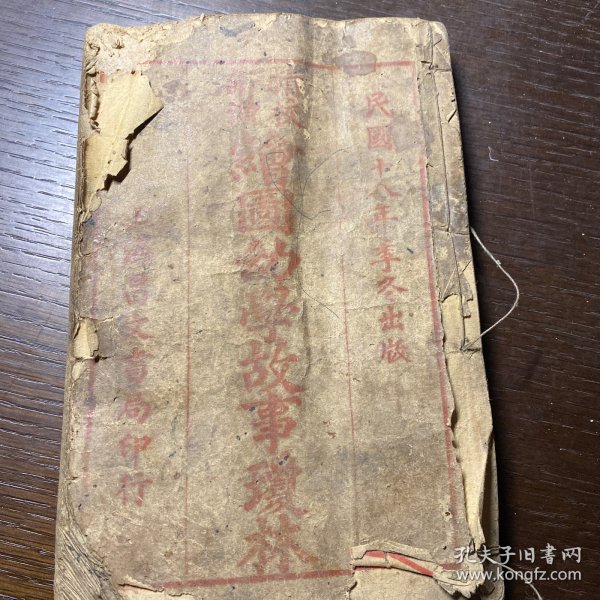 民國十八年季冬出版
繪圖幼學故事瓊林
文書局印行
孔夫子旧書网
www.kongfz.com